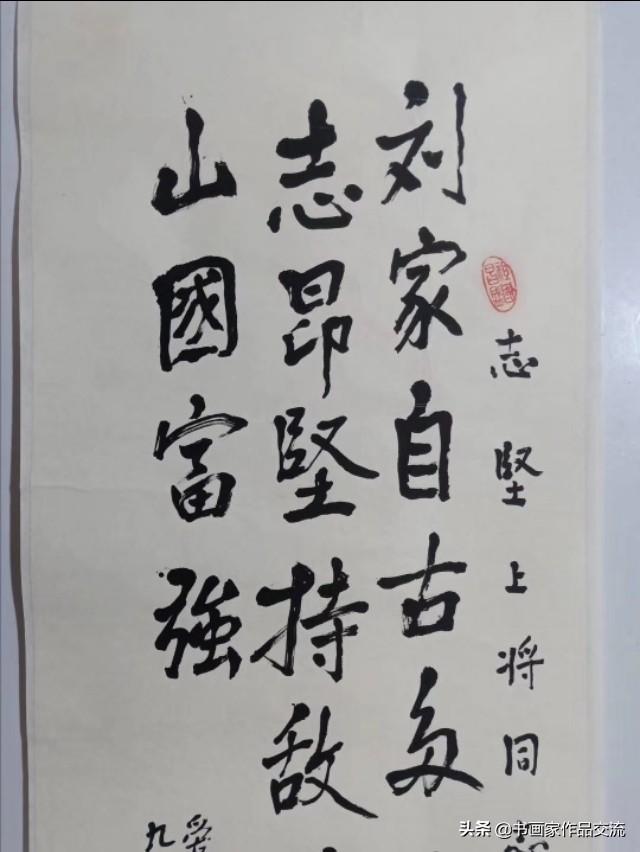 志堅上将同
刘家自古多
志昂堅持敌
山國富強
九
头条 @书画家作品交流